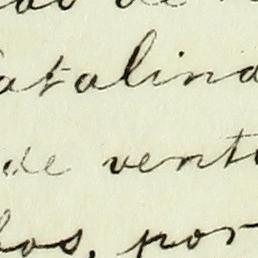 de
atalina
de vent
bos, por